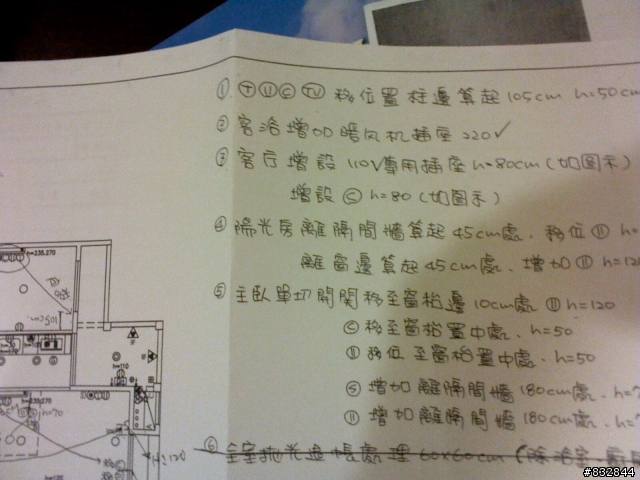 ① Ⓣ Ⓤ Ⓒ TV 移位置 柱邊算起 105cm h=50cm
② 客浴增加暖风机插座 220V
③ 客厅增設 110V專用插座 h=80cm (如圖示)
增設 Ⓒ h=80 (如圖示)
④ 陽光房離隔間牆算起 45cm處. 移位 h=
離窗邊算起 45cm處. 增加 h=12
⑤ 主臥單切開關移至窗枱邊 10cm處 h=120
Ⓒ 移至窗枱置中處. h=50
移位至窗枱置中處. h=50
Ⓢ 增加離隔間牆 180cm處. h=
增加離隔間牆 180cm處. h=
⑥ 全室拋光 處理 60x60cm (除浴室.
h=235,270
h=110
h=70
h:120
#832844